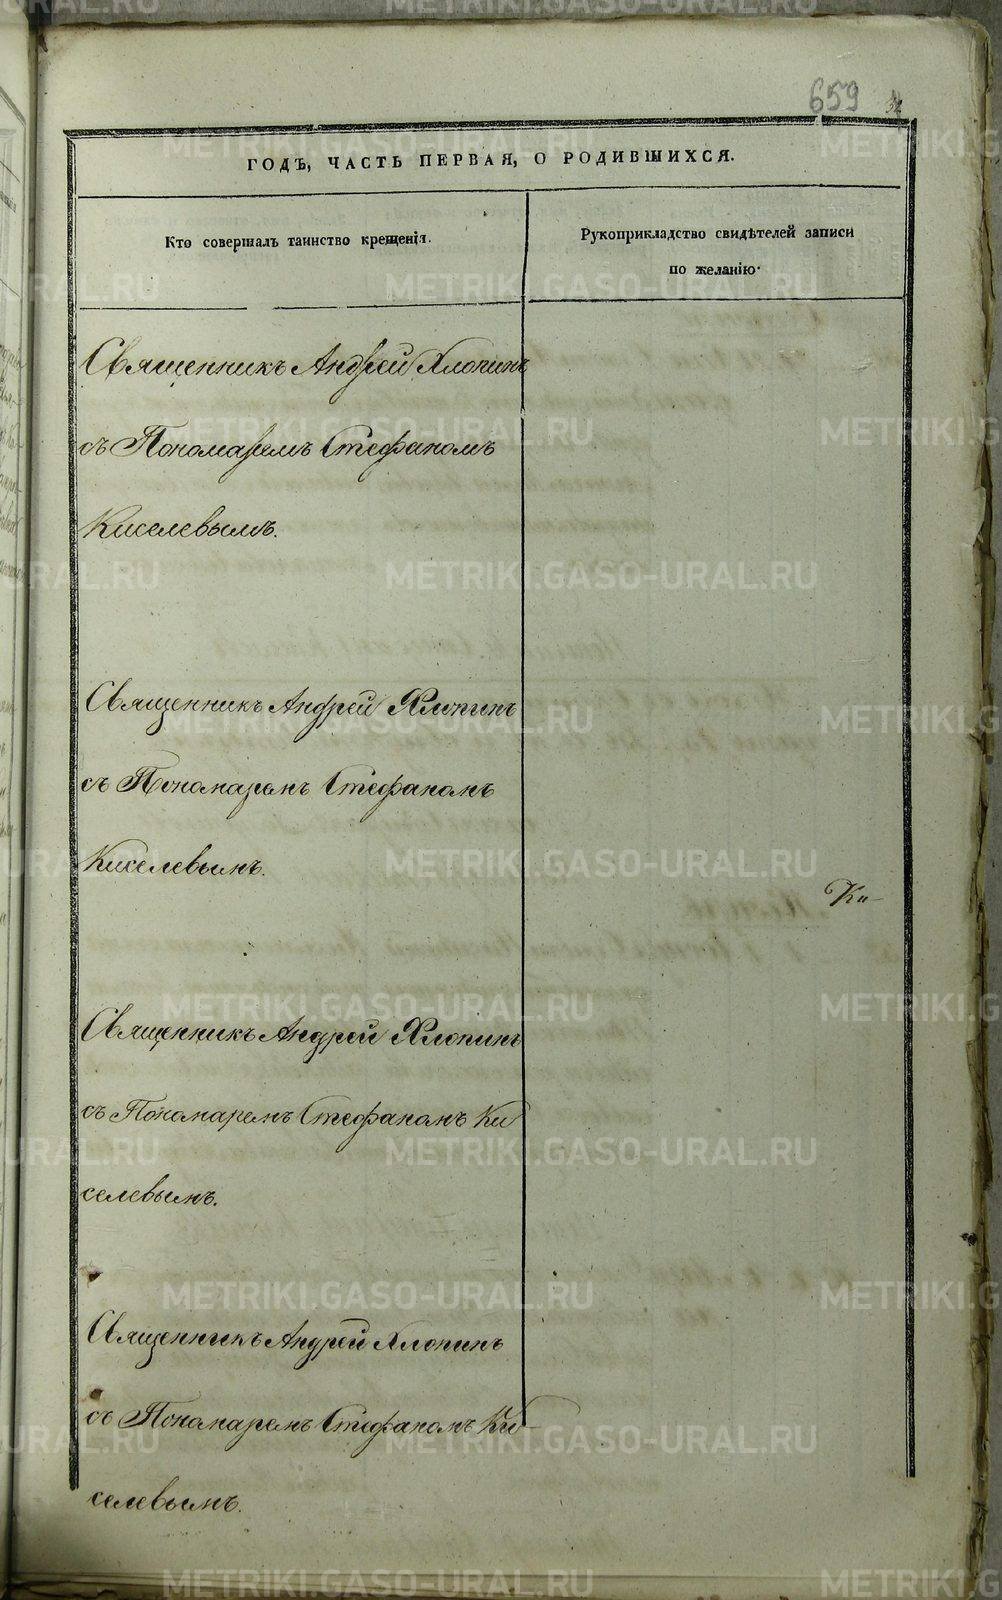 659
32
ГОДЪ, ЧАСТЬ ПЕРВАЯ, О РОДИВШИХСЯ.
Кто совершалъ таинство крещенія.
Рукоприкладство свидѣтелей записи
по желанію.
Священникъ Андрей Хлопинъ
съ Пономаремъ Стефаномъ
Киселевымъ.
Священникъ Андрей Хлопинъ
съ Пономаремъ Стефаномъ
Киселевымъ.
Ки-
Священникъ Андрей Хлопинъ
съ Пономаремъ Стефаномъ Ки
селевымъ.
Священникъ Андрей Хлопинъ
съ Пономаремъ Стефаномъ Ки-
селевымъ.
METRIKI.GASO-URAL.RU